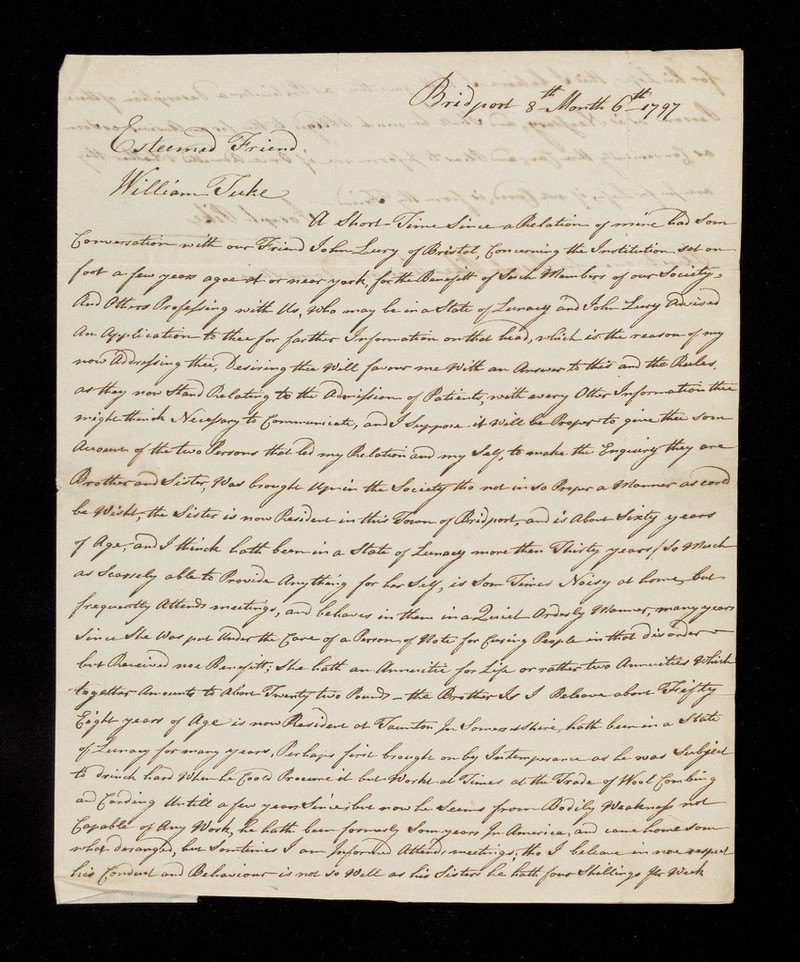 Bridport 8th Month 6th 1797
Esteemed Friend.
William Tuke
A Short Time Since a Relation of mine had Som
Conversation with our Friend John Lury of Bristol, Concerning the Institution set on
foot a few years agoe at or near york, for the Benefitt of Such Members of our Society,
And Others Professing with Us, Who may be in a State of Lunacy and John Lury Advised
An Application to thee for farther Information on that head, which is the reason of my
now Addressing thee, Desiring thee Will favour me With an Answer to this and the Rules.
as they now Stand Relating to the Admission of Patients, with every Other Information thee
might think Necessary to Communicate, and I Suppose it Will be Proper to give thee som
Account of the two Persons that led my Relation and my Self, to make the Enquiry they are
Brother and Sister, Was brought Up in the Society tho not in so Proper a Manner as could
be Wisht, the Sister is now Resident in this Town of Bridport, and is About Sixty years
of Age, and I think hath been in a State of Lunacy more then Thirty years / So Much
as Scarsely able to Provide Any thing for her Self, is Som Times Noisy at home, but
frequently Attends meetings, and behaves in them in a Quiet Orderly Manner, many years
Since She Was put Under the Care of a Person of Note for Curing People in that disorder
but Received noe Benefitt; She hath an Annuitie for Life or rather two Annuities Which
together Amounts to About Twenty two Pounds - the Brother Is I Beleave about Thifty
Eight years of Age is now Resident at Taunton In Somersetshire, hath been in a State
of Lunacy for many years, Perhaps first brought on by Intemperance as he was Subject
to drinck hard When he Cood Procure it but Workt at Times at the Trade of Wool Combing
and Carding Untill a few years Since; but now he Seems from Bodily Weakness not
Capable of Any Work, he hath been formerly Som years In America, and came home som
what deranged, but Somtimes I am Informed Attends meetings, tho I beleave in noe respect
his Conduct and Behaviour is not so Well as his Sisters he hath four Shillings Pr Week